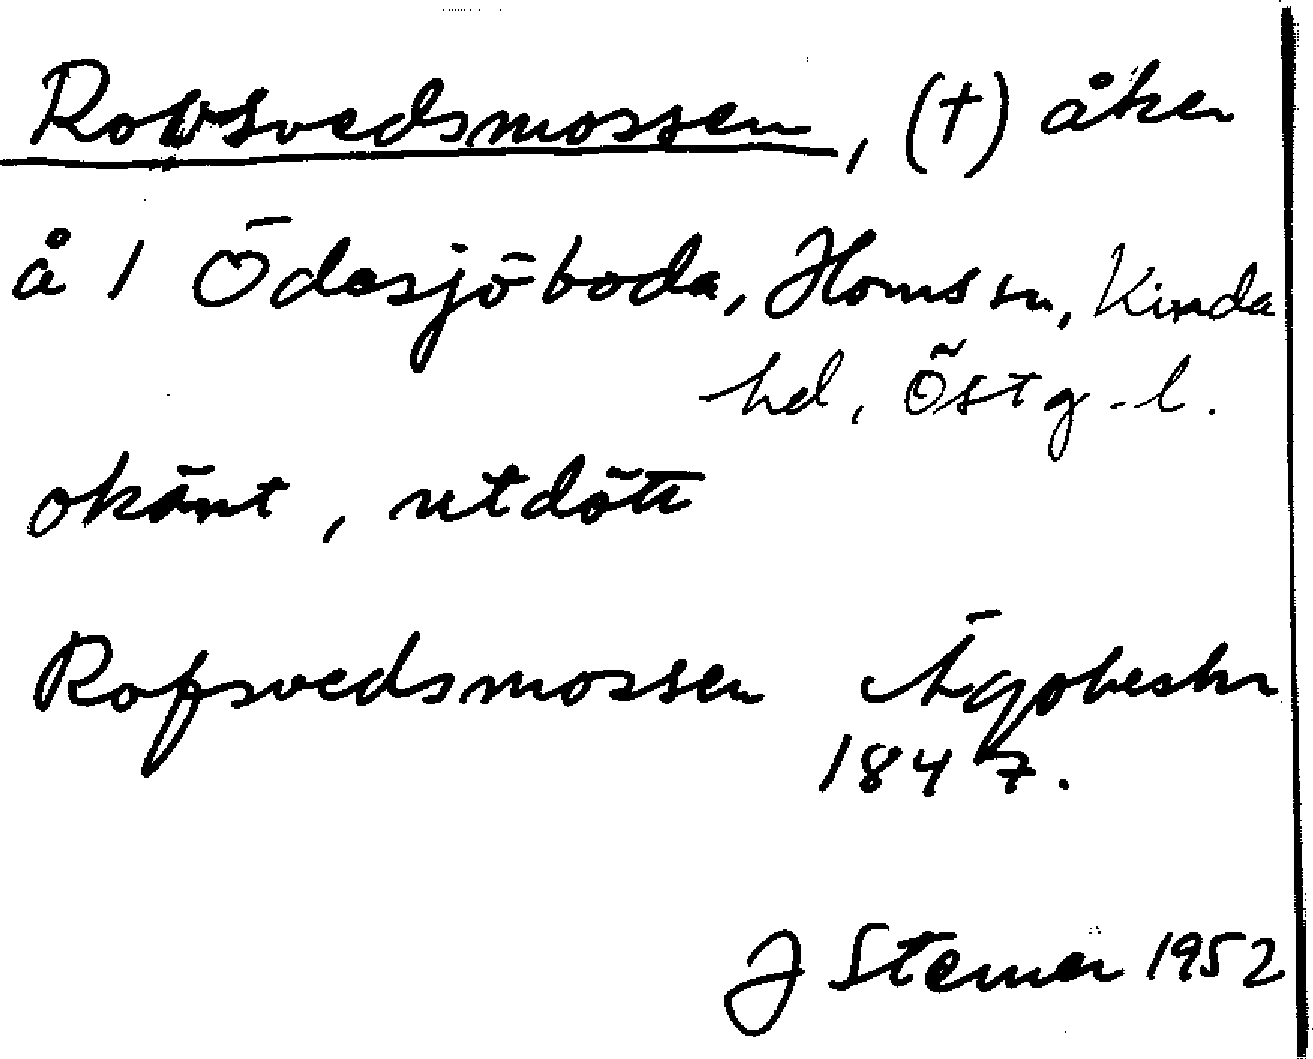 Rovsvedsmossen, (†) åker
å 1 Ödesjöboda, Horns sn, Kinda
hd, Östg-l.
okänt, utdött
Rofsvedsmossen Ägobeskr
1847.
J Sterner 1952